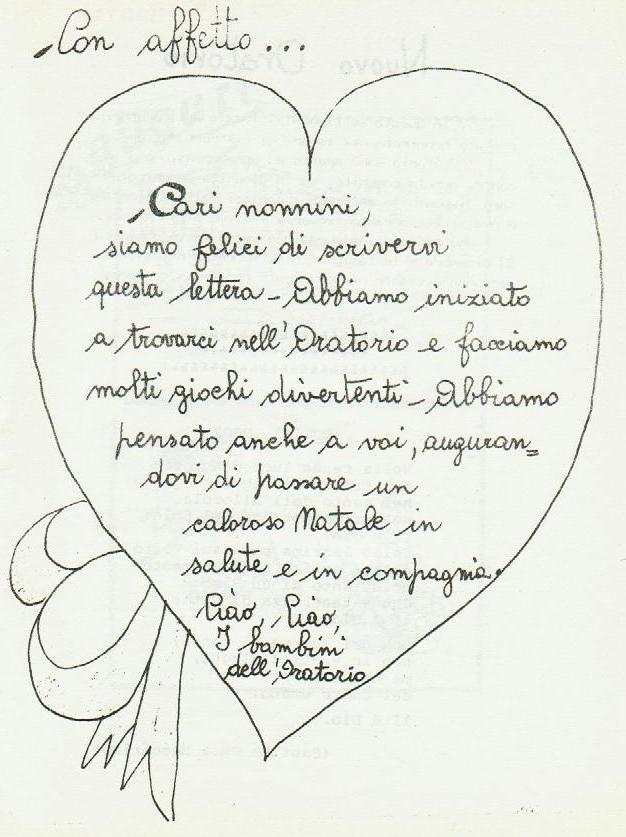 Con affetto...
Cari nonnini,
siamo felici di scrivervi
questa lettera - Abbiamo iniziato
a trovarci nell'Oratorio e facciamo
molti giochi divertenti - Abbiamo
pensato anche a voi, auguran=
dovi di passare un
caloroso Natale in
salute e in compagnia.
Ciào, Ciào,
I bambini
dell'Oratorio